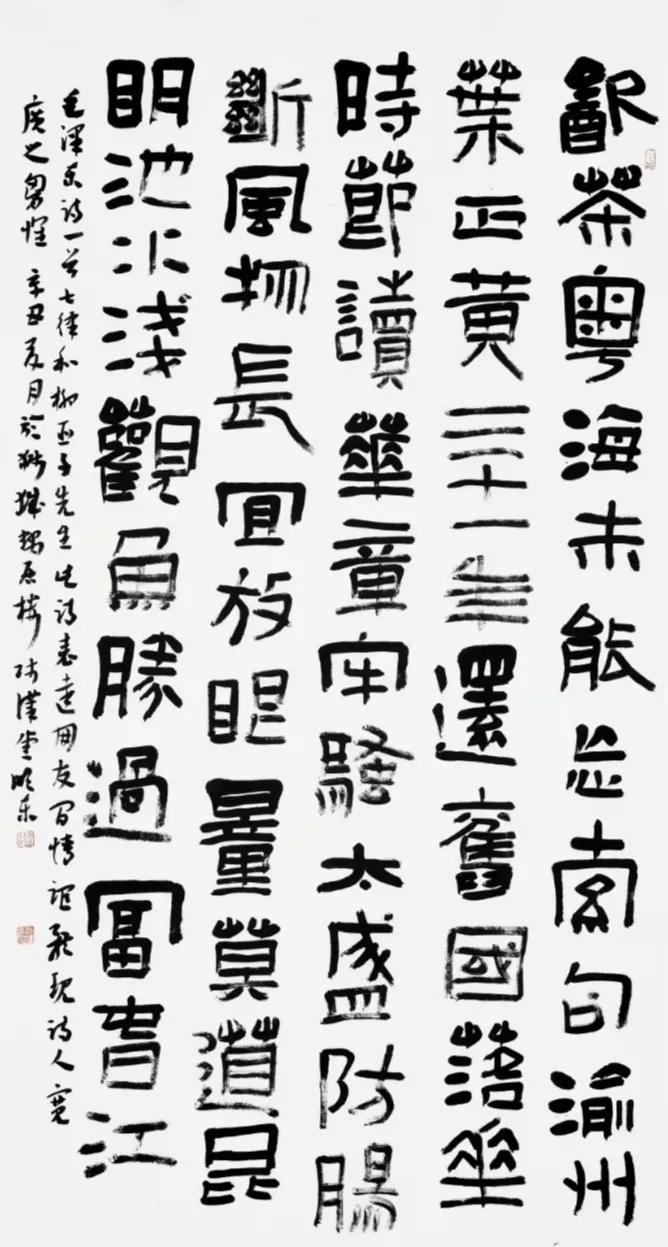 飲茶粵海未能忘索句渝州
葉正黃三十一年還舊國落華
時節讀華章牢騷太盛防腸
斷風物長宜放眼量莫道昆
明池水淺觀魚勝過富春江
毛澤東詩一首七律和柳亞子先生此詩表達朋友間情誼現詩人寬
廣之胸懷 辛丑夏月於